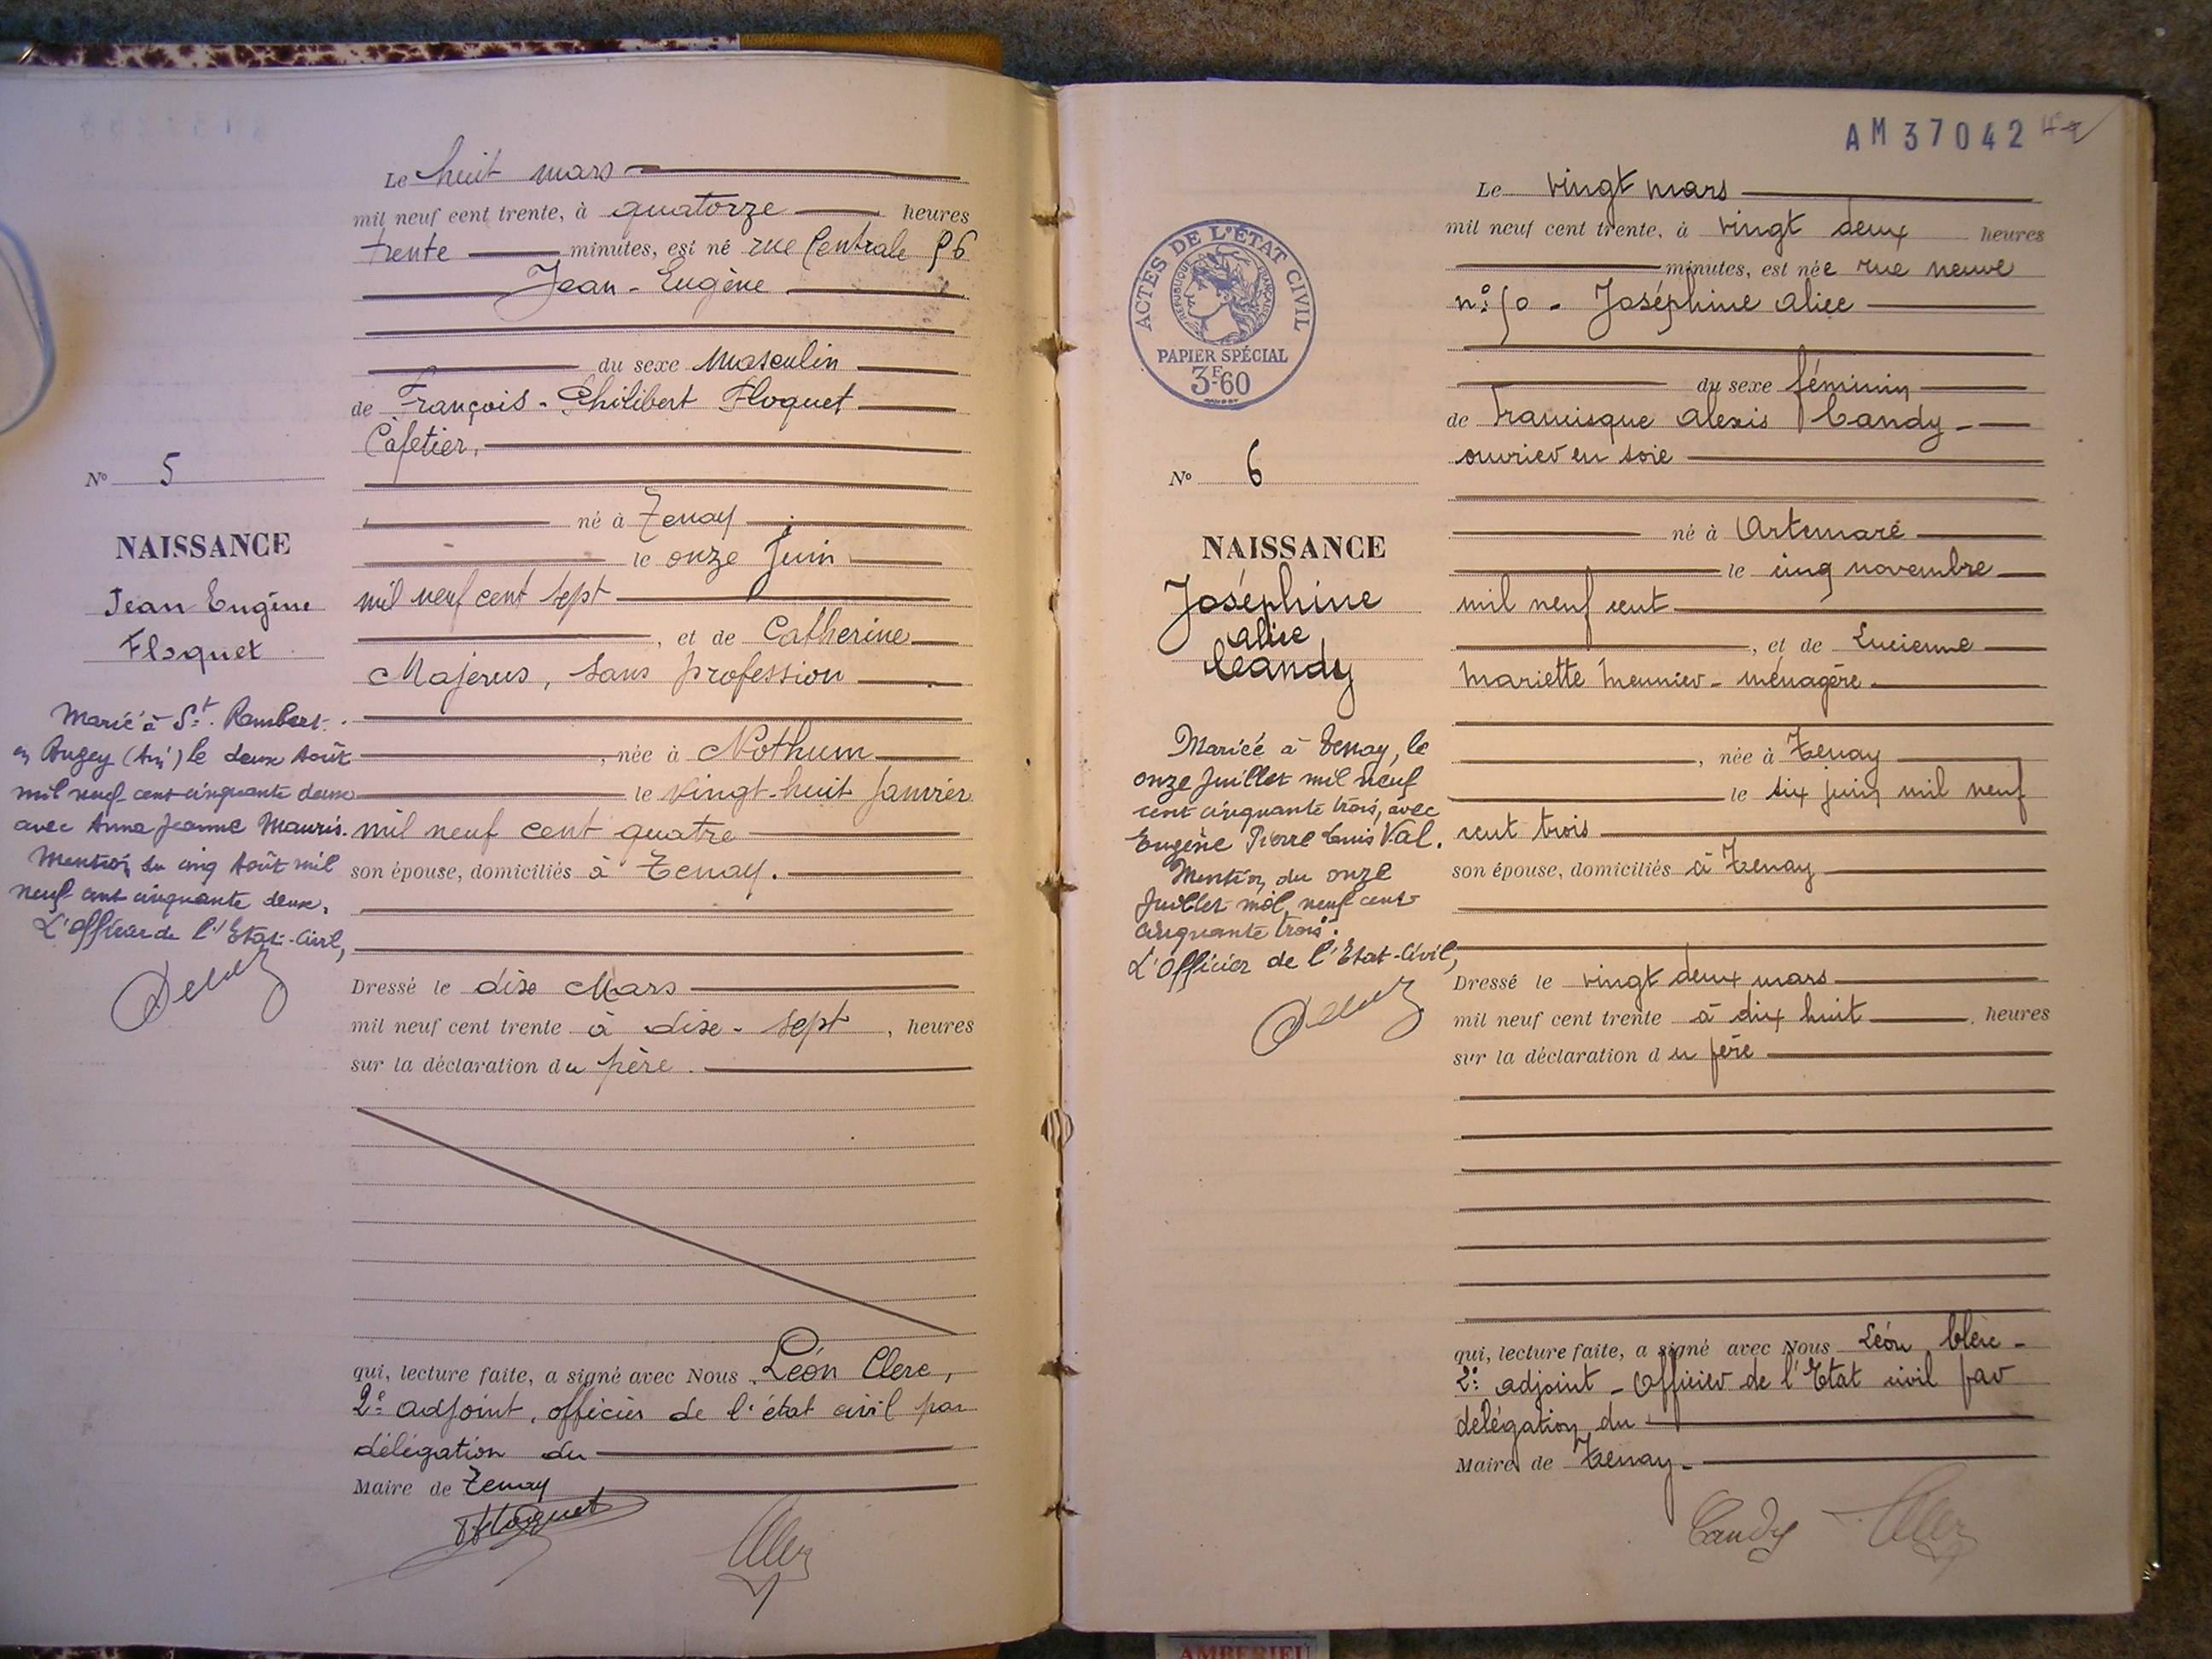 Le huit mars
mil neuf cent trente, à quatorze heures
trente minutes, est né rue Centrale 56
Jean-Eugène
du sexe Masculin
de François-Philibert Floquet
Cafetier,
né à Tenay
le onze Juin
mil neuf cent sept
, et de Catherine
Majerus, sans profession
, née à Nothum
le vingt-huit Janvier
mil neuf cent quatre
son épouse, domiciliés à Tenay.
Dressé le dix Mars
mil neuf cent trente à dix-sept, heures
sur la déclaration du père.
qui, lecture faite, a signé avec Nous Léon Clerc,
2e adjoint, officier de l'état civil par
délégation du
Maire de Tenay
Floquet
No 5
NAISSANCE
Jean Eugène
Floquet
Marié à St. Rambert-
en Bugey (Ain) le deux Août
mil neuf cent cinquante deux
avec Anna Jeanne Mauris.
Mention du cinq Août mil
neuf cent cinquante deux.
L'Officier de l'Etat-Civil,
AM37042
Le vingt mars
mil neuf cent trente, à vingt deux heures
minutes, est née rue neuve
n°: 50 - Joséphine Alice
du sexe féminin
de Francisque Alexis Candy -
ouvrier en soie
né à Artemare
le cinq novembre
mil neuf cent
, et de Lucienne
Mariette Meunier - ménagère.
, née à Tenay
le six juin mil neuf
cent trois
son épouse, domiciliés à Tenay
Dressé le vingt deux mars
mil neuf cent trente à dix huit heures
sur la déclaration du père
qui, lecture faite, a signé avec Nous Léon Clerc -
2e: adjoint - Officier de l'Etat civil par
délégation du
Maire de Tenay -
Candy
ACTES DE L'ÉTAT CIVIL
RÉPUBLIQUE FRANÇAISE
PAPIER SPÉCIAL
3F60
No 6
NAISSANCE
Joséphine
Alice
Candy
Mariée à Tenay, le
onze Juillet mil neuf
cent cinquante trois, avec
Eugène Pierre Louis Val.
Mention du onze
Juillet mil neuf cent
cinquante trois.
L'Officier de l'Etat-Civil,
AMBERIEU